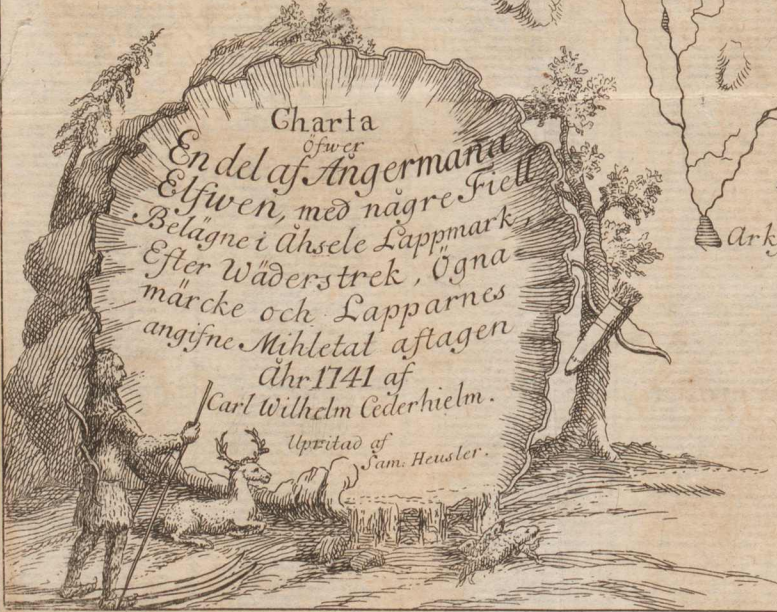 Charta
Öfwer
En del af Ångermana
Elfwen, med någre Fiell
Belägne i Åhsele Lappmark,
Efter Wäderstrek, Ögna
märcke och Lapparnes
angifne Mihletal aftagen
Åhr 1741 af
Carl Wilhelm Cederhielm.
Upritad af
Sam: Heusler.